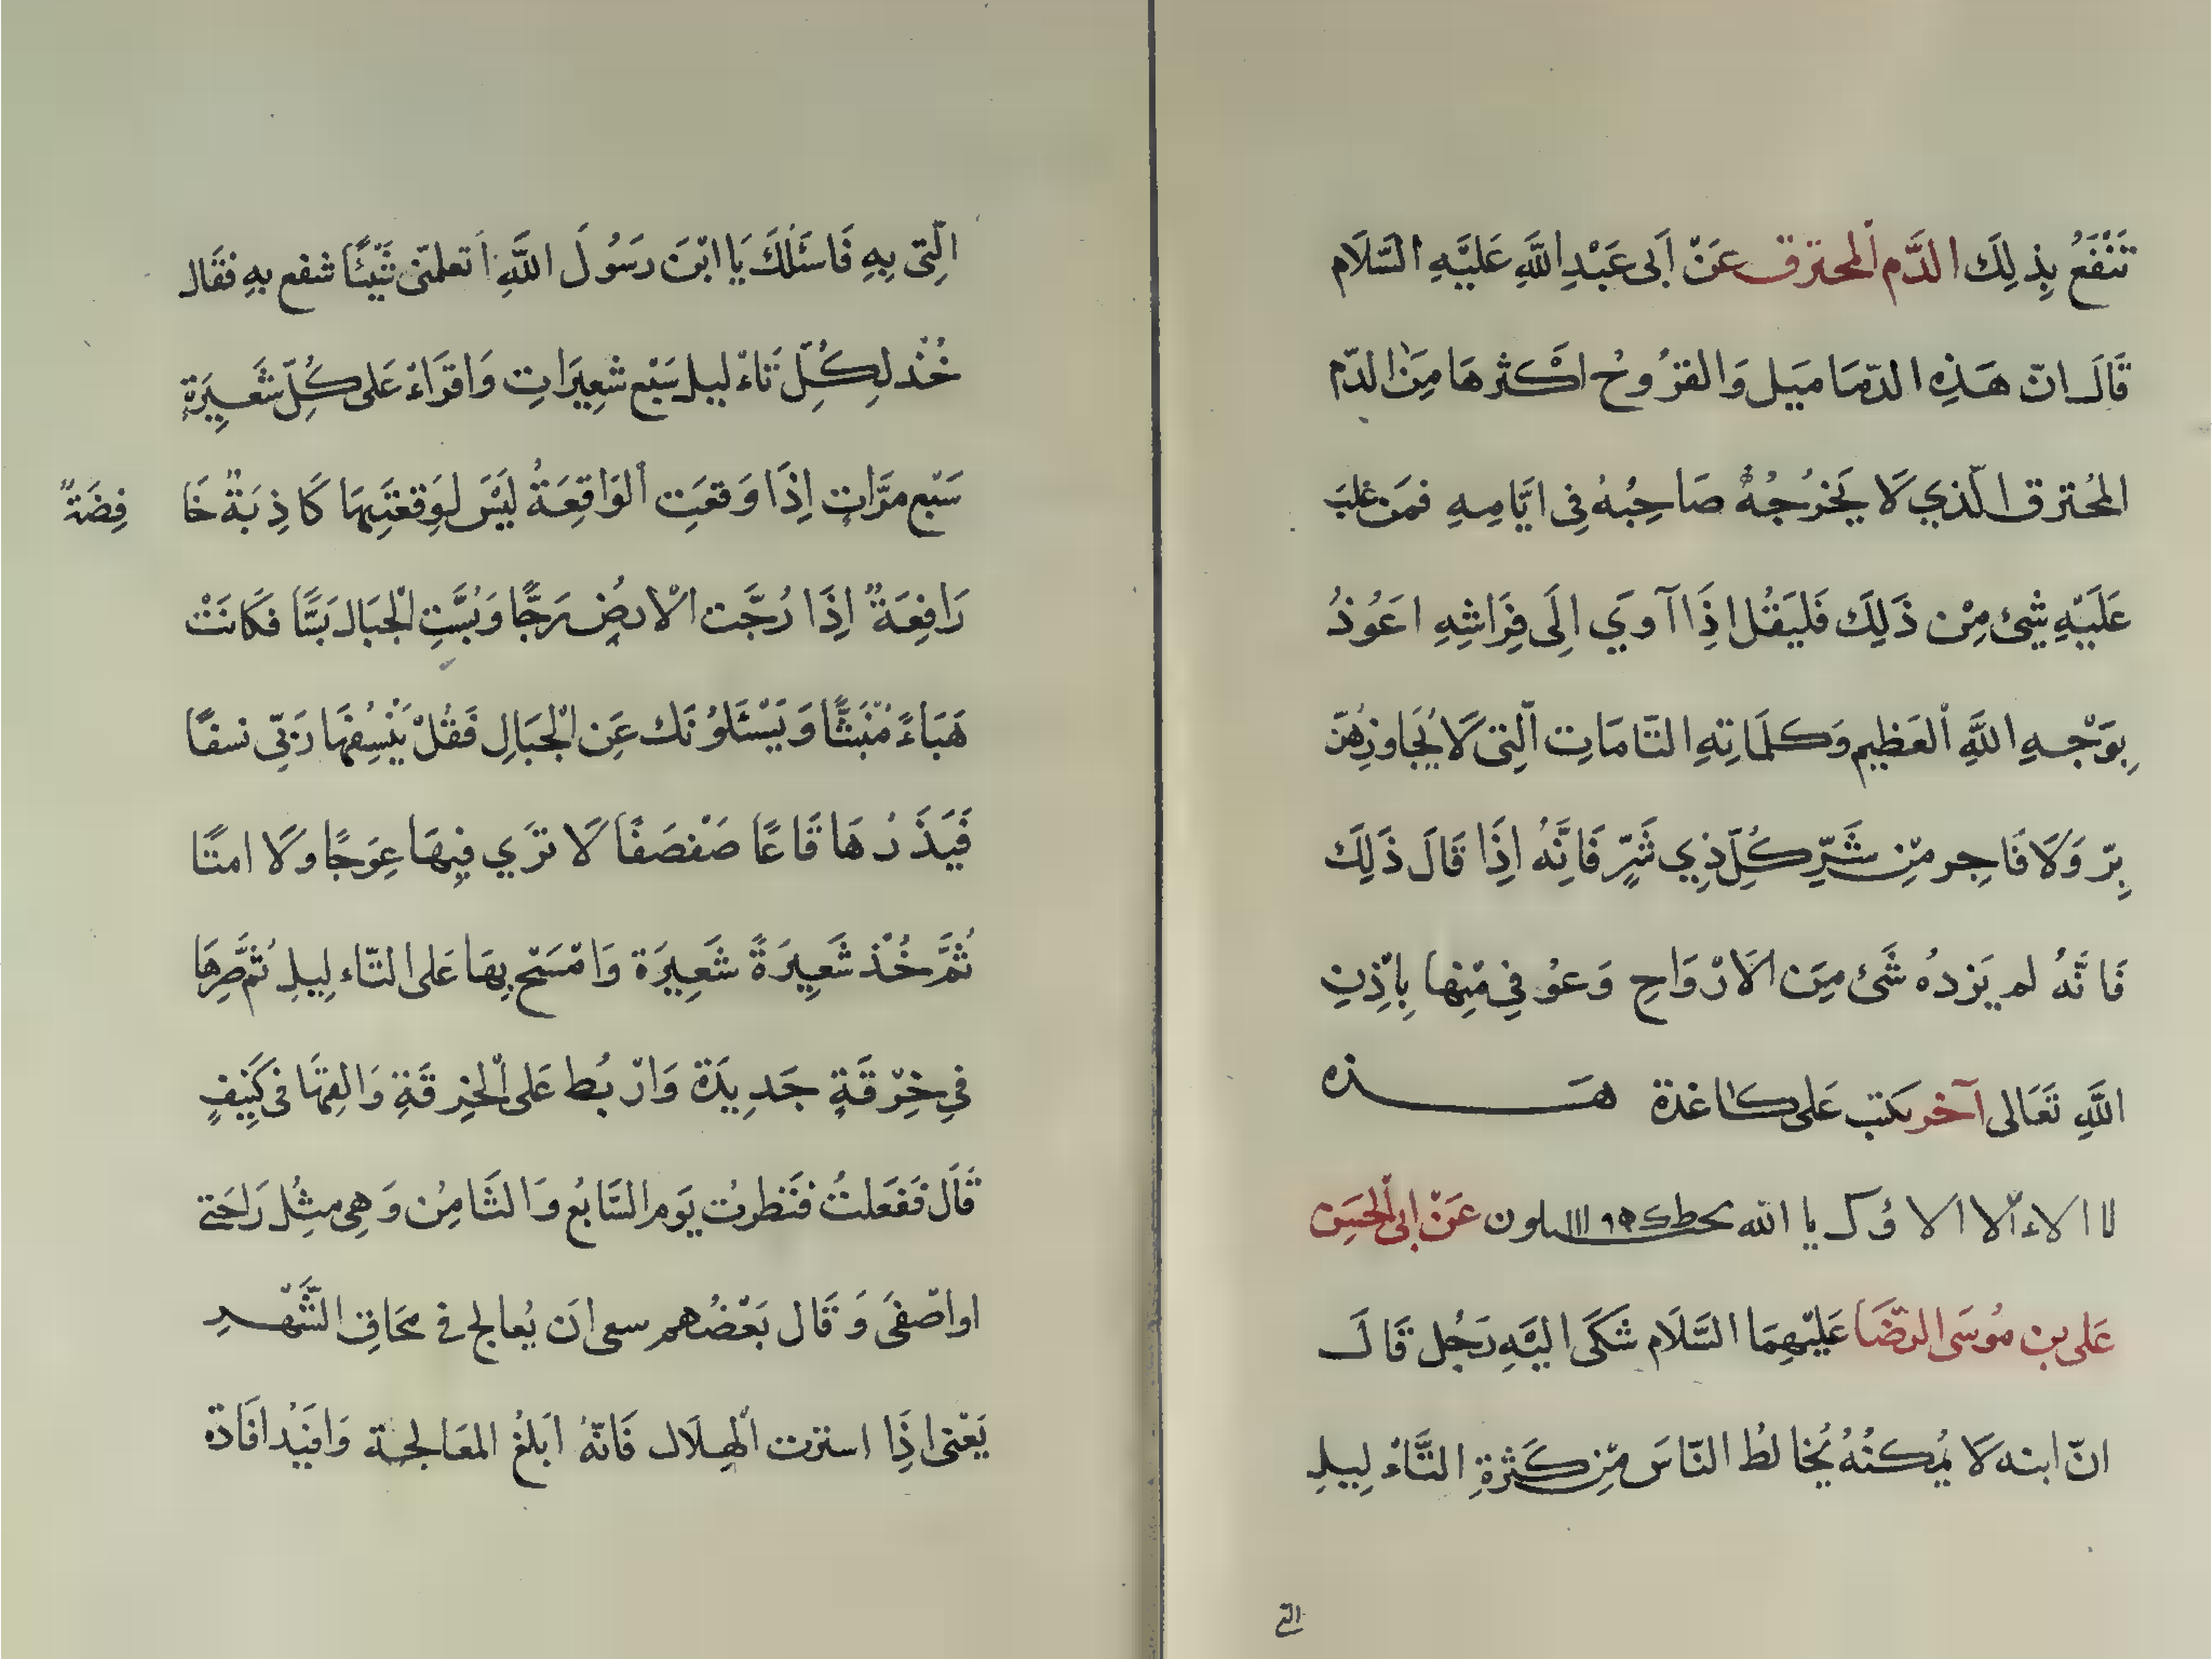 تَنْفَعُ بِذٰلِكَ الدَّم المحترق عَنْ اَبى عَبْدِ اللَّهِ عَلَيْهِ السَّلَام
قَالَ انّ هَذِهِ الدّمَامَيل وَالقرُوحُ اكْثرهَا مِنَ الدّم
المحُترق الّذي لَا يَخرُجُهُ صَاحِبُهُ فِى ايَّامِهِ فمَن غلبَ
عَلَيْهِ شَئ مِنْ ذَلِكَ فَليَقُل اذِا آوَي الَى فِرَاشِهِ اعَوُذُ
بِوَجْهِ اللَّهِ العَظِيمِ وَكلمَاتِهِ التّامَاتِ الّتِى لَا يُجَاوزِهُنّ
بِرّ وَلَا فَاجِر مّنِ شَرِّ كُلِّ ذِي شَرٍّ فَانَّهُ اذَِا قَالَ ذَلِكَ
فَانَّهُ لم يَزدهُ شَئ مِنَ الَارْوَاحِ وَعوُفِىَ مْنِها بِاذْنِ
اللَّهِ تَعَالى آخر يكتب عَلى كاغذة هَـذه
لا الاء الا الا وُك يا الله ون عَنْ ابى الحَسَن
عَلى بن موُسَى الرضَا عَليْهِمَا السَّلَام شَكَى الَيْهِ رَجُل قَالَ
انّ ابنه لَا يُمكنُهُ يُخالطُ النّاسَ مِّن كَثرةِ الثَّاءْ لِيلِ
التى
الّتِى بِهِ فَاسَئَلُكَ يَا ابْنَ رَسُولَ اللَّهِ اَ تعلمّنى شَيْئًا شفع بهِ فقَال
خُذ لِكُلِّ ثَاءْ ليل سَبْع شعِيرَاتِ وَاقرَاءْ عَلى كُلِّ شَعَيرَةٍ
سَبْع مرَّاتٍ اِذَا وَقعَتِ الوَاقِعَةُ لَيْسَ لِوَقعَتِهَا كَاذِبَةٌ خَا فِضَةٌ
رَافِعَةٌ اِذَا رُجَّت الْارضُ رَجًّا وَبُسَّتِ الْجبَال بَسًّا فكَانَتْ
هَبَاءً مُنْبَثًّا وَيَسْئَلوُنَك عَن الْجبَالِ فَقُلْ يَنْسِفُهَا رَبّى نسفًا
فَيَذَرُهَا قَاعًا صَفْصَفًا لَا ترَي فيِهَا عِوَجًا وَلَا امتًا
ثُمَّ خُذ شَعِيرَةً شَعِيرَة وَامْسَح بِهَا عَلى الثّاء لِيلِ ثمُّ صّرِهَا
فِي خِرْقَةٍ جَدِيدَة وَارْبُط عَلى الْخِرقَةِ وَالقِهَا فى كَنِيفٍ
قَالَ فَفَعَلتُ فنَظرتُ يَوم السَّابعُ وَالثَامِنُ وَهِى مثِلُ رَاحَتى
او اصْفىَ وَقَال بَعْضُهم سعى انَ يُعالج فى محَاقِ الشَّهْرِ
يَعْنى اذِا استرت الهِلَال فَانّهُ ابَلغُ المعَالجة وَافيَدُ افَادة